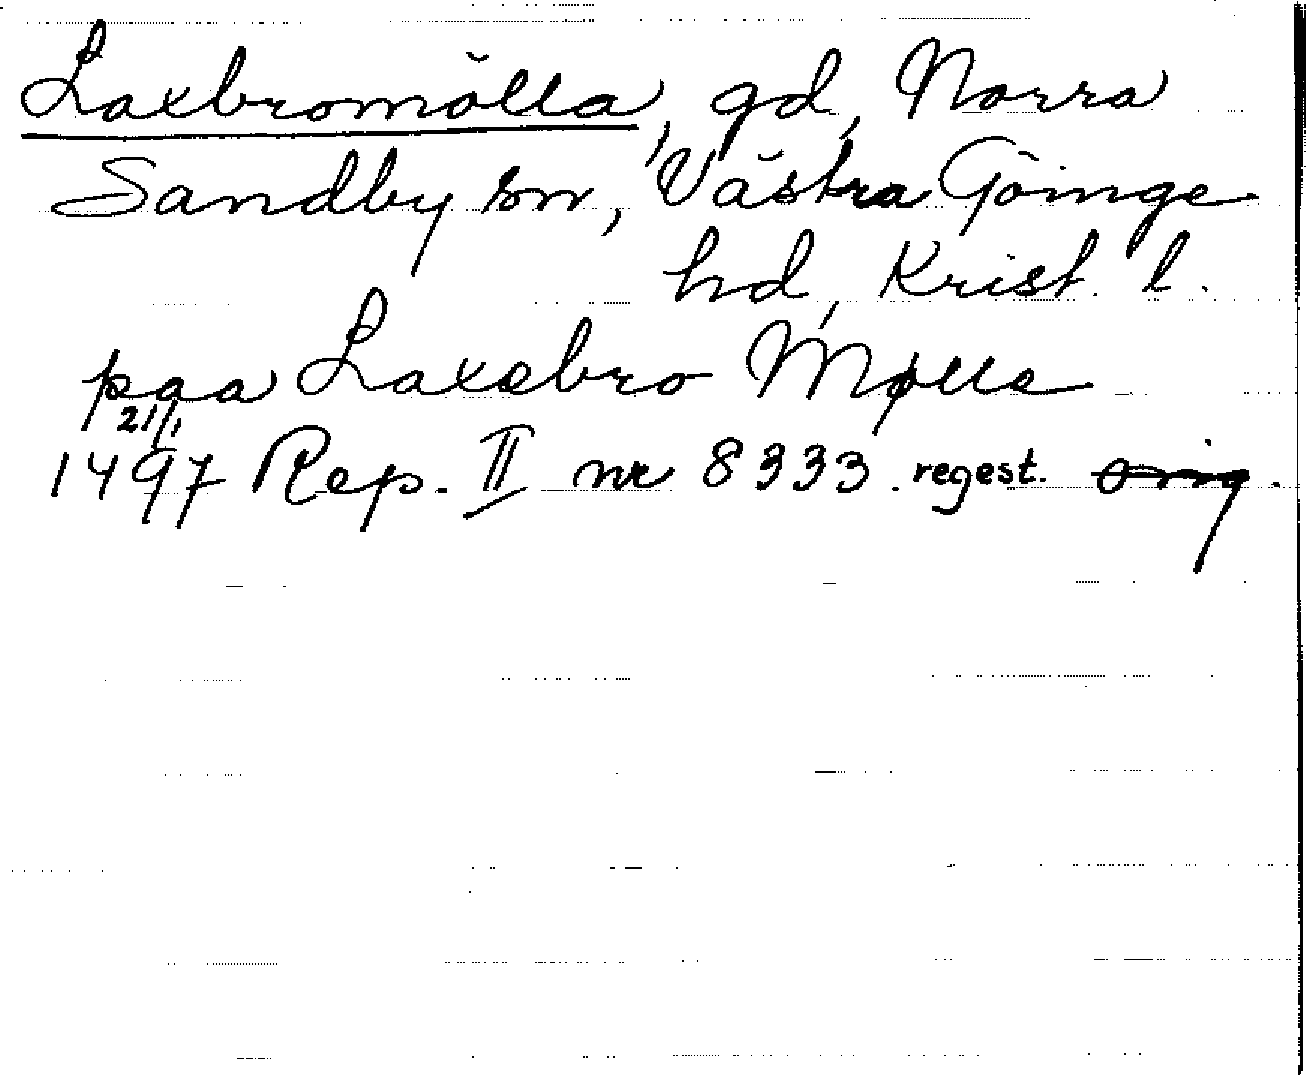 Laxbromölla, gd, Norra
Sandby sn, Västra Göinge
hd, Krist. l.
paa Laxebro Mølle
21/1
1497 Rep. II nr 8333. regest. orig.